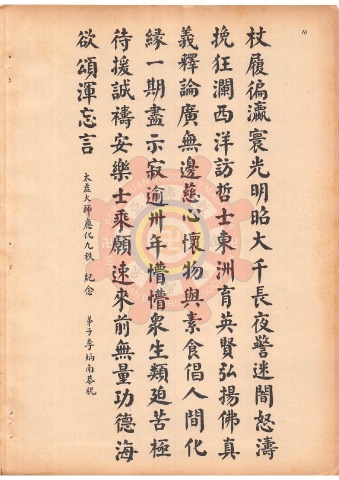 10
杖履徧瀛寰光明昭大千長夜警迷闇怒濤
挽狂瀾西洋訪哲士東洲育英賢弘揚佛真
義釋論廣無邊慈心懷物與素食倡人間化
緣一期盡示寂逾卅年懵懵衆生類迫苦極
待援誠禱安樂士乘願速來前無量功德海
欲頌渾忘言
太虛大師應化九秩 紀念
弟子李炳南恭祝